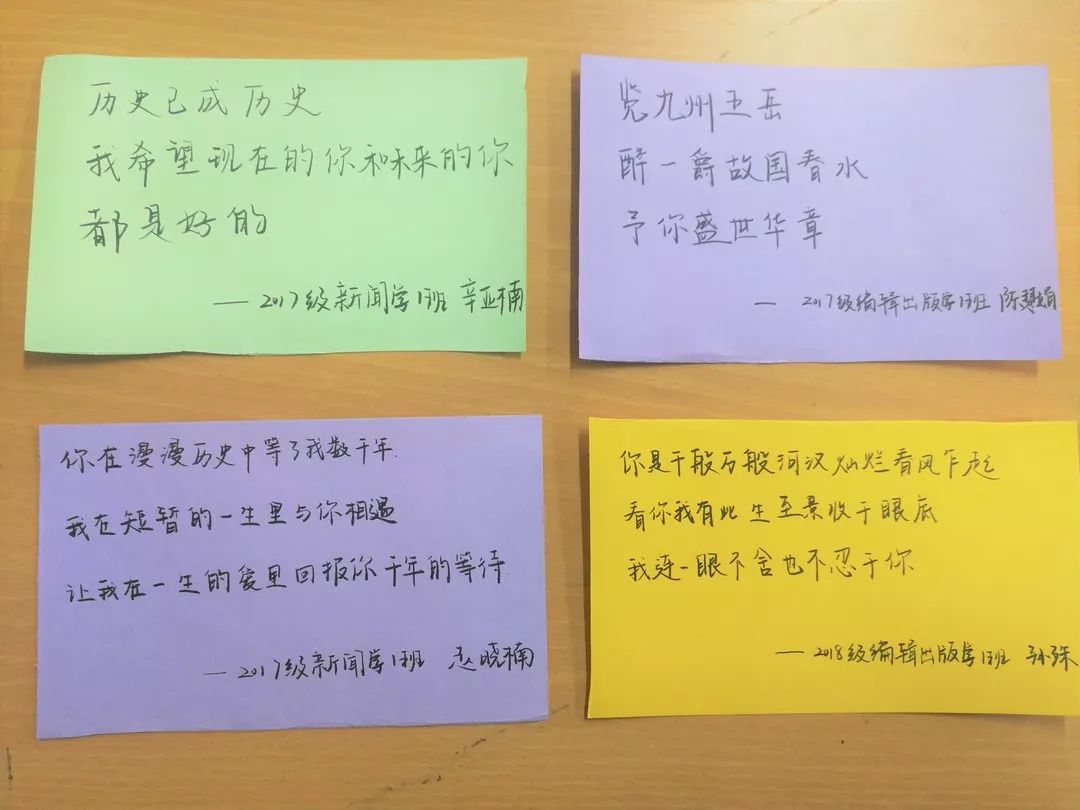 历史已成历史
我希望现在的你和未来的你
都是好的
— 2017级新闻学1班 辛亚楠
览九州五岳
醉一爵故国春水
予你盛世华章
— 2017级编辑出版学1班 陈慧娟
你在漫漫历史中等了我数千年.
我在短暂的一生里与你相遇
让我在一生的爱里回报你千年的等待.
— 2017级新闻学1班 赵晓楠
你是千般万般河汉灿烂春风乍起
看你我有此生至景收于眼底
我连一眼不舍也不忍于你
— 2018级编辑出版学1班 孙珠